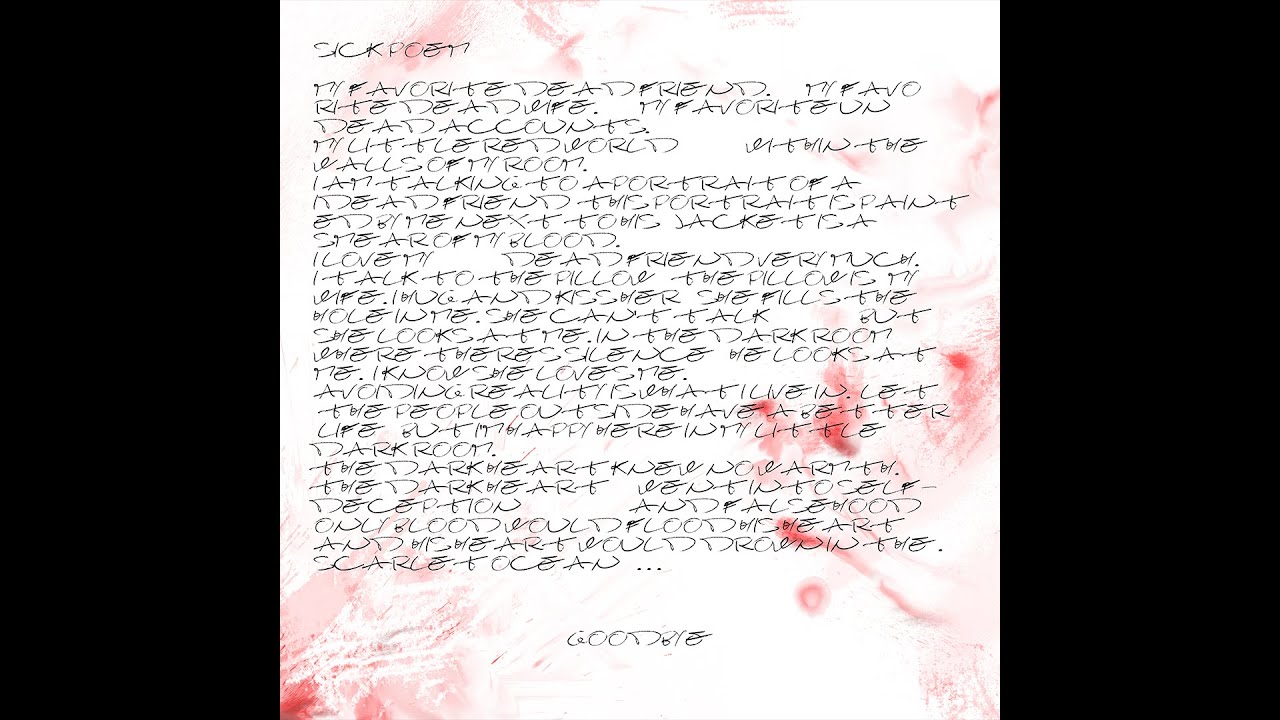 SICK POEM
MY FAVORITE DEAD FRIEND. MY FAVO
RITE DEAD WIFE. MY FAVORITE UN
DEAD ACCOUNTS.
MY LITTLE RED WORLD WITHIN THE
WALLS OF MY ROOM.
I AM TALKING TO A PORTRAIT OF A
DEAD FRIEND THIS PORTRAIT IS PAINT
ED BY ME NEXT TO HIS JACKET IS A
SMEAR OF MY BLOOD.
I LOVE MY DEAD FRIEND VERY MUCH.
I TALK TO THE PILLOW THE PILLOW IS MY
WIFE. I HUG AND KISS HER SHE FILLS THE
HOLE IN ME. SHE CAN'T TALK BUT
SHE LOOKS AT ME. IN THE DARK ROOM
WHERE THERES SILENCE HE LOOKS AT
ME. I KNOW SHE LOVES ME.
AVOIDING REALITY IS WHAT I LIVE IN. LET
THE PEOPLE OUTSIDE HAVE A BETTER
LIFE BUT IM HAPPY HERE IN MY LITTLE
DARK ROOM.
THE DARK HEART KNEW NO WARMTH.
THE DARK HEART WENT INTO SELF-
DECEPTION AND FALSEHOOD
ONLY BLOOD WOULD FLOOD HIS HEART
AND HIS HEART WOULD DROWN IN THE.
SCARLET OCEAN ...
GOODBYE